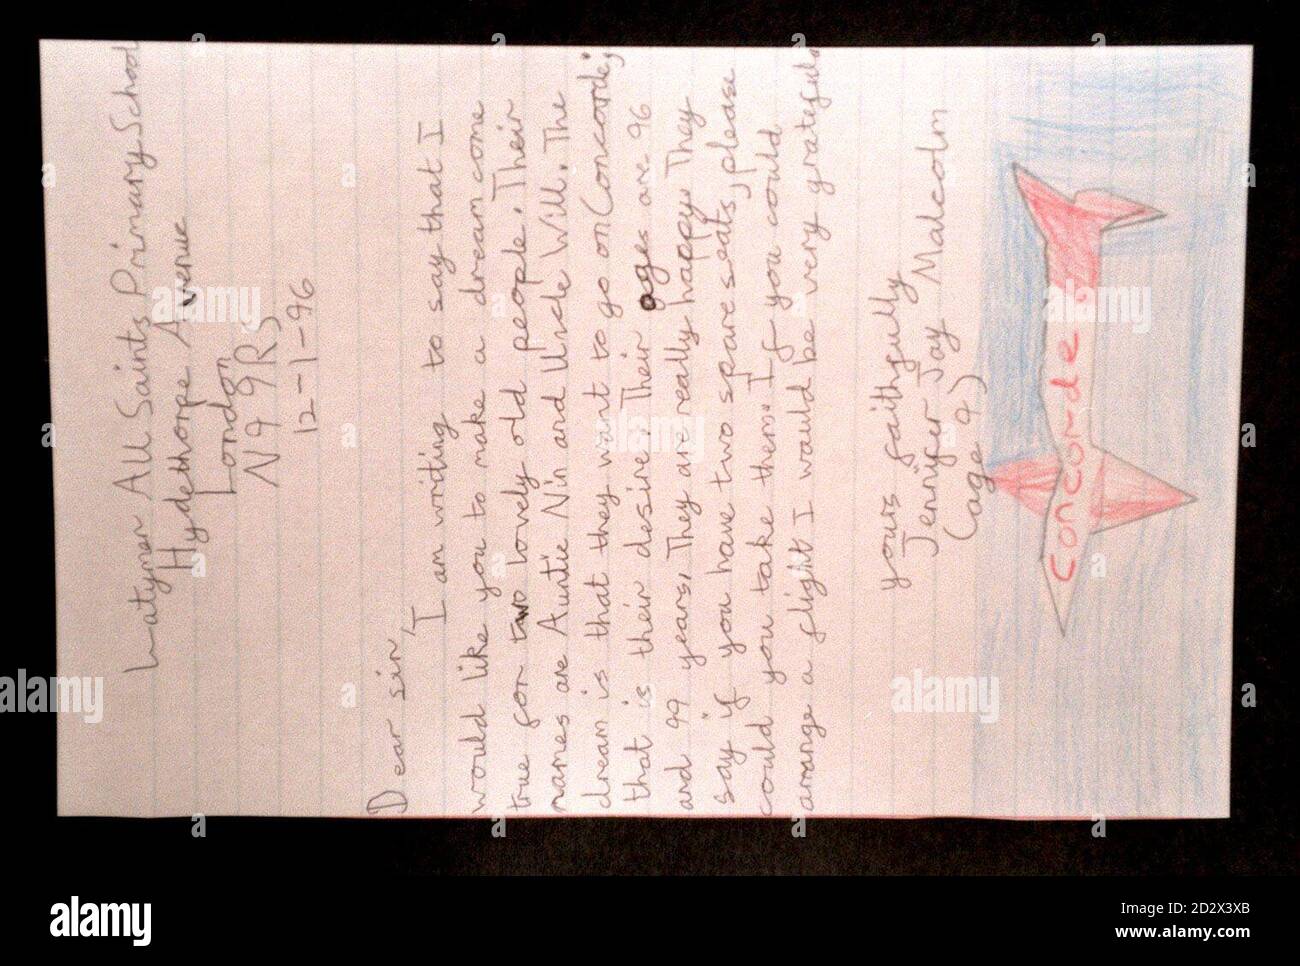 Latymer All Saints Primary School
Hydethorpe Avenue
London
N9 9RS
12-1-96
Dear sir,
I am writing to say that I
would like you to make a dream come
true for two lovely old people. Their
names are Auntie Nin and Uncle Will. The
dream is that they want to go on Concorde;
that is their desire. Their ages are 96
and 99 years. They are really happy. They
say if you have two spare seats, please
could you take them. If you could
arrange a flight I would be very grateful.
yours faithfully
Jennifer Jay Malcolm
(age 9)
Concorde
alamy
Image ID: D2X3XB
www.alamy.com